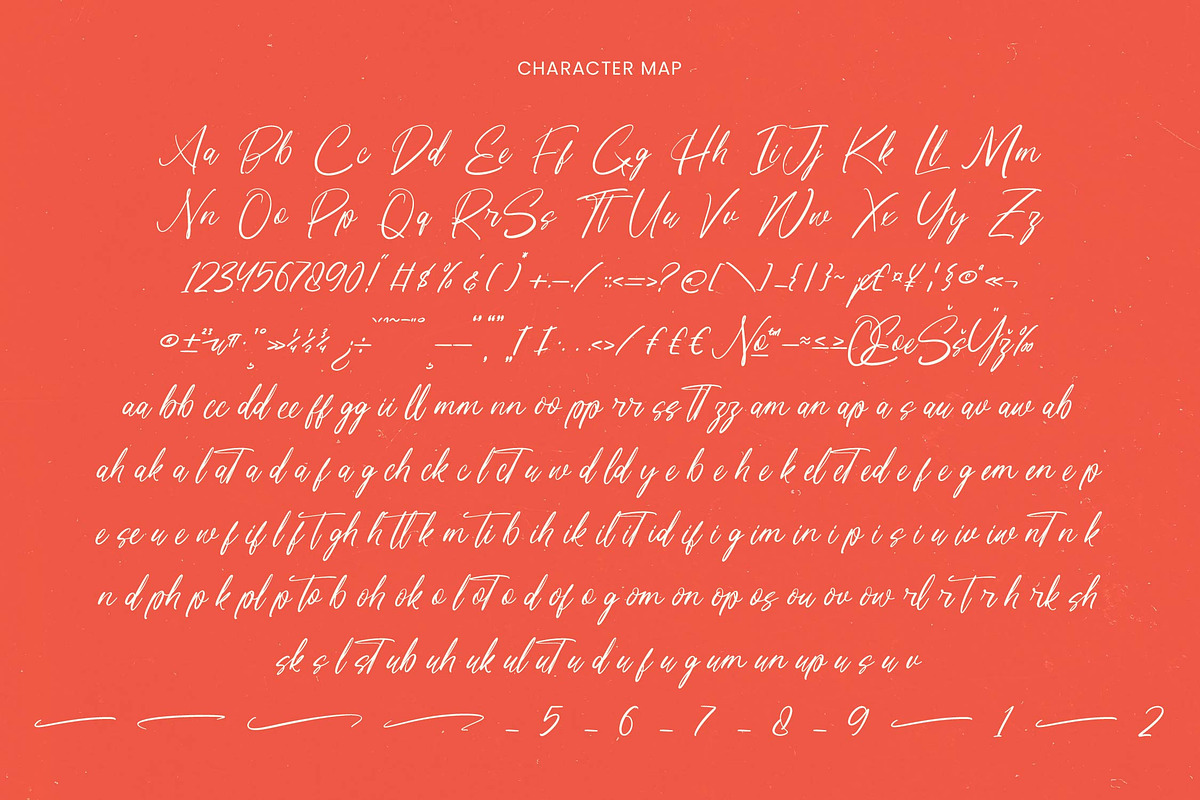 CHARACTER MAP
Aa Bb Cc Dd Ee Ff Gg Hh Ii Jj Kk Ll Mm
Nn Oo Pp Qq Rr Ss Tt Uu Vv Ww Xx Yy Zz
1234567890!" # $ % & ( ) * + . – . / : ; < = > ? @ [ \ ] _ { | } ~ ¢ £ ¤ ¥ ¦ § © ª « ¬
® ± ² ³ µ ¶ · ¸ ¹ º » ¼ ½ ¾ ¿ ÷ — — “ ” „ † ‡ … < > / ƒ £ € № ™ – ≈ ≤ ≥ Œ œ Š š Ÿ ž ‰
aa bb cc dd ee ff gg ii ll mm nn oo pp rr ss tt zz am an ap a s au av aw ab
ah ak a l at a d a f a g ch ck c l ct u w d ld y e b e h e k el et ed e f e g em en e p
e s e u e w f if l f t gh h tt k m ti b ih ik il it id if i g im in i p i s i u iv iw nt n k
n d ph p k pl p to b oh ok o l ot o d of o g om on op os ou ov ow rl r t r h rk sh
sk s l st ub uh uk ul ut u d u f u g um un up u s u v
_ 5 _ 6 _ 7 _ 8 _ 9 1 2